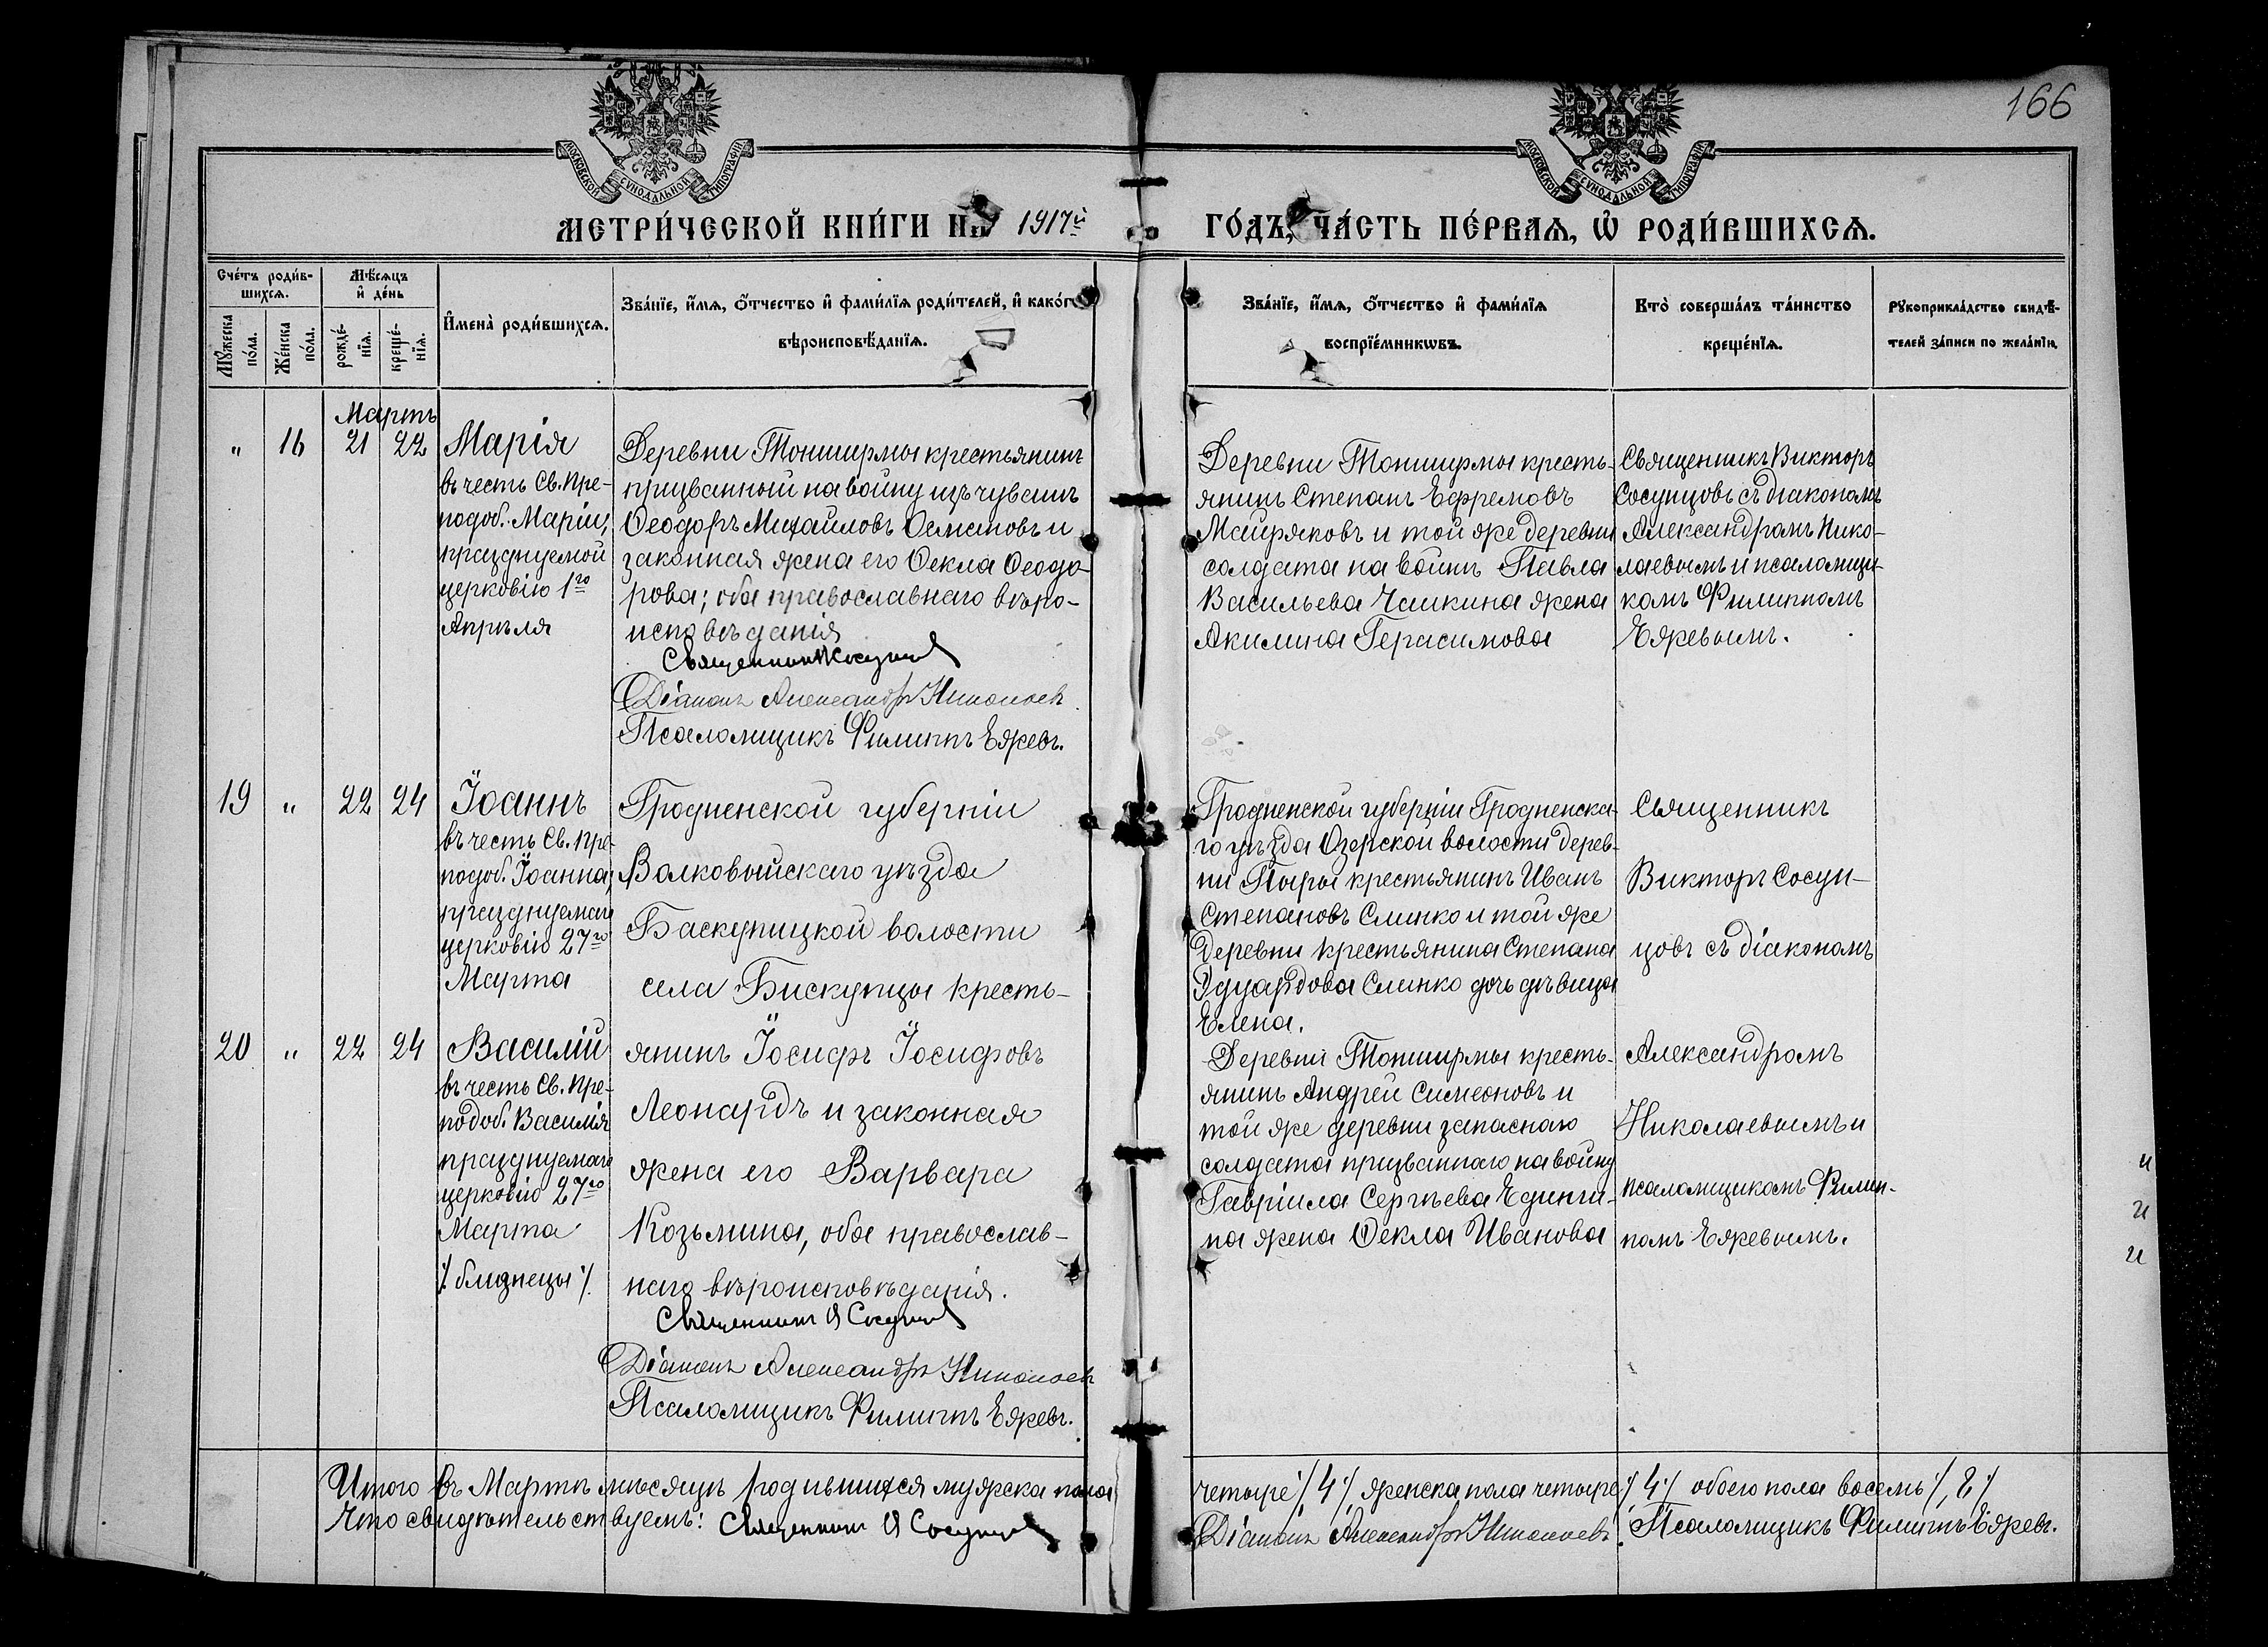 166
МОСКОВСКОЙ СѴНОДАЛЬНОЙ ТИПОГРАФІИ
МОСКОВСКОЙ СѴНОДАЛЬНОЙ ТИПОГРАФІИ
МЕТРИ́ЧЕСКОЙ КНИ́ГИ НА 1917й ГО́ДЪ, ЧА́СТЬ ПЕ́РВАѦ, Ѡ҆ РОДИ́ВШИХСѦ.
Сче́тъ роди́в-
шихсѧ.
Мꙋ́жеска
по́ла.
Же́нска
по́ла.
Мѣ́сѧцъ
и҆ де́нь
рожде́-
нїѧ.
креще́-
нїѧ.
И҆мена̀ роди́вшихсѧ.
Зва́нїе, и҆́мѧ, ѻ҆́тчество и҆ фами́лїѧ роди́телей, и҆ како́гѡ
вѣроисповѣ́данїѧ.
Зва́нїе, и҆́мѧ, ѻ҆́тчество и҆ фами́лїѧ
воспрїе́мникѡвъ.
Кто̀ соверша́лъ та́инство
креще́нїѧ.
Рꙋкоприкла́дство свидѣ́-
телей за́писи по жела́нїю.
Мартъ
" 16 21 22
Марія
въ честь Св. Пре-
подоб. Маріи,
празднуемой
церковію 1го
Апрѣля
Деревни Тоншермы крестьянинъ
призванный на войну изъ чувашъ
Ѳеодоръ Михаиловъ и
законная жена его Ѳекла Ѳеодо-
рова; оба православнаго вѣро-
исповѣданія
Священникъ Сосунцовъ
Діаконъ Александръ Николаевъ
Псаломщикъ Филиппъ Ежевъ.
Деревни Тоншермы кресть-
янинъ Степанъ Ефремовъ
Майряковъ и той же деревни
солдата на войнѣ Павла
Васильева Чашкина жена
Акилина Герасимова
Священникъ Викторъ
Сосунцовъ съ діакономъ
Александромъ Нико-
лаевымъ и псаломщи-
комъ Филиппомъ
Ежевымъ.
19 " 22 24
Іоаннъ
въ честь Св. Пре-
подоб. Іоанна,
празднуемаго
церковію 27го
Марта
20 " 22 24
Василій
въ честь Св. Пре-
подоб. Василія
празднуемаго
церковію 27го
Марта
/. близнецы /.
Гродненской губерніи
Волковыйскаго уѣзда
Баскупицкой волости
села Бискупцы кресть-
янинъ Іосифъ Іосифовъ
Леонардъ и законная
жена его Варвара
Козьмина, оба православ-
наго вѣроисповѣданія.
Священникъ В Сосунцовъ
Діаконъ Александръ Николаевъ
Псаломщикъ Филиппъ Ежевъ.
Гродненской губерніи Гродненска-
го уѣзда Озерской волости дерев-
ни Пыры крестьянинъ Иванъ
Степановъ Слинко и той же
деревни крестьянина Степана
Эдуардова Слинко дочь дѣвица
Елена.
Деревни Тоншермы кресть-
янинъ Андрей Симеоновъ и
той же деревни запаснаго
солдата призваннаго на войну
Гавріила Сергѣева
на жена Ѳекла Иванова
Священникъ
Викторъ Сосун-
цовъ съ діакономъ
Александромъ
Николаевымъ и
псаломщикомъ Филип-
помъ Ежевымъ.
и
и
и
Итого въ Мартѣ мѣсяцѣ родившихся мужска пола четыре /. 4 /. женска пола четыре /. 4 /. обоего пола восемь /. 8 /.
Что свидѣтельствуемъ: Священникъ В Сосунцовъ Діаконъ Александръ Николаевъ. Псаломщикъ Филиппъ Ежевъ.